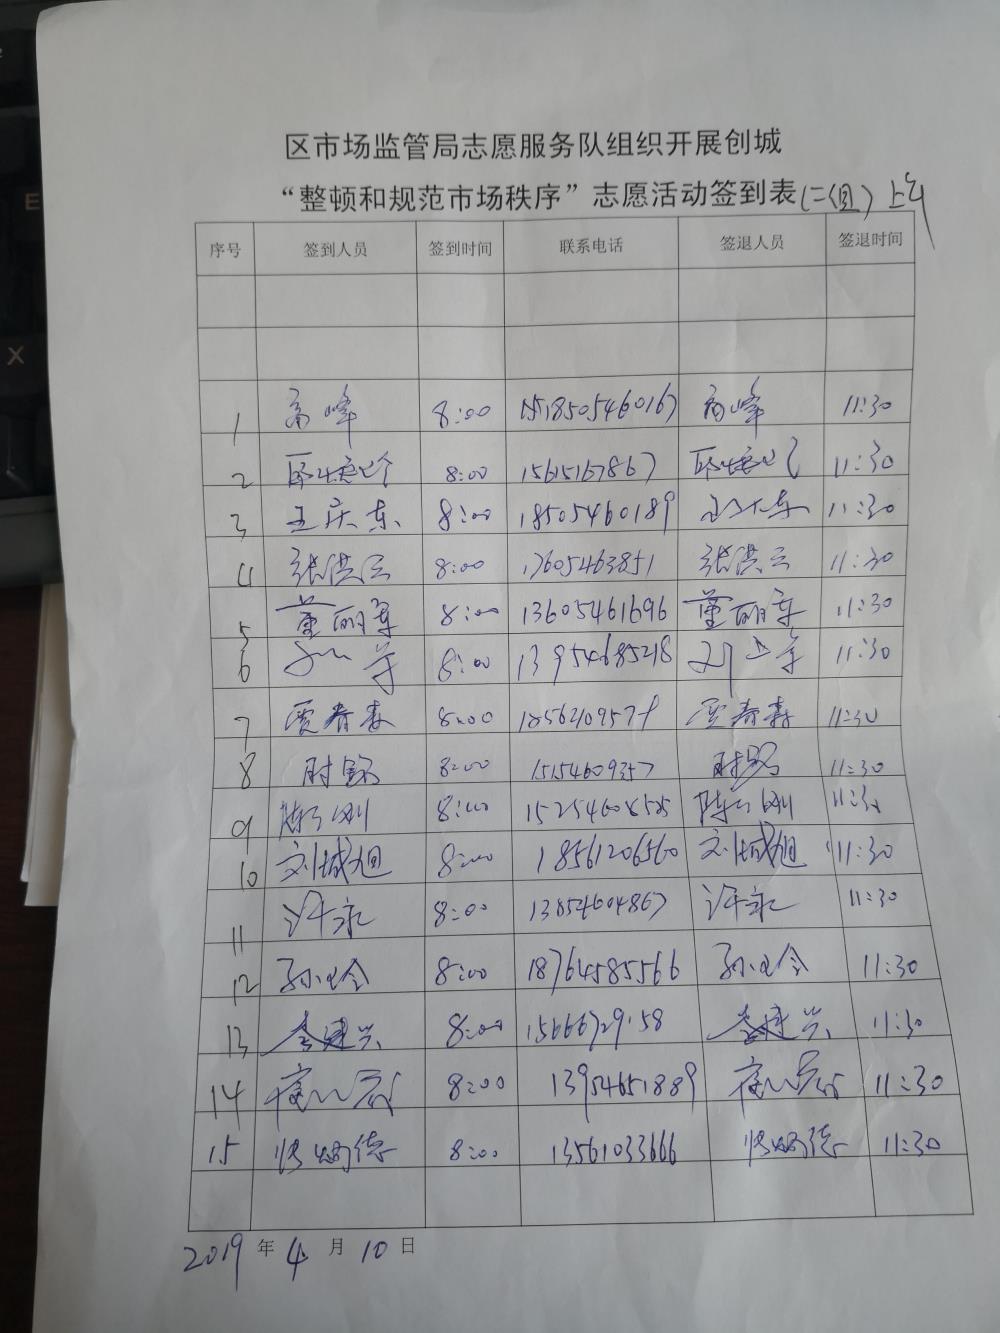 区市场监管局志愿服务队组织开展创城
“整顿和规范市场秩序”志愿活动签到表(二组)上午
序号 签到人员 签到时间 联系电话 签退人员 签退时间
1 高峰 8:00 高峰 11:30
2 8:00 15615167867 11:30
3 王庆东 8:00 18505460189 王庆东 11:30
4 张洪云 8:00 17605463851 张洪云 11:30
5 董丽军 8:00 13605461696 董丽军 11:30
6 8:00 13954685218 11:30
7 贾春森 8:00 贾春森 11:30
8 8:00 15154609357 11:30
9 8:00 11:30
10 刘城旭 8:00 18561206560 刘城旭 11:30
11 许永 8:00 13854604867 许永 11:30
12 8:00 18764585566 11:30
13 李建兴 8:00 15666729158 李建兴 11:30
14 8:00 13954651889 11:30
15 8:00 13561033666 11:30
2019年4月10日